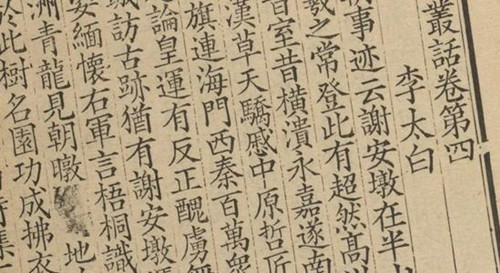 叢話卷第四
李太白
事迹云謝安墩在半
羲之常登此有超然高
室昔橫潰永嘉遂南
漢草天驕蹙中原哲匠
旗連海門西秦百萬衆
論皇運有反正醜虜無
城訪古跡猶有謝安墩
安緬懷右軍言梧桐識
洲青龍見朝暾地
於此樹名園功成拂衣